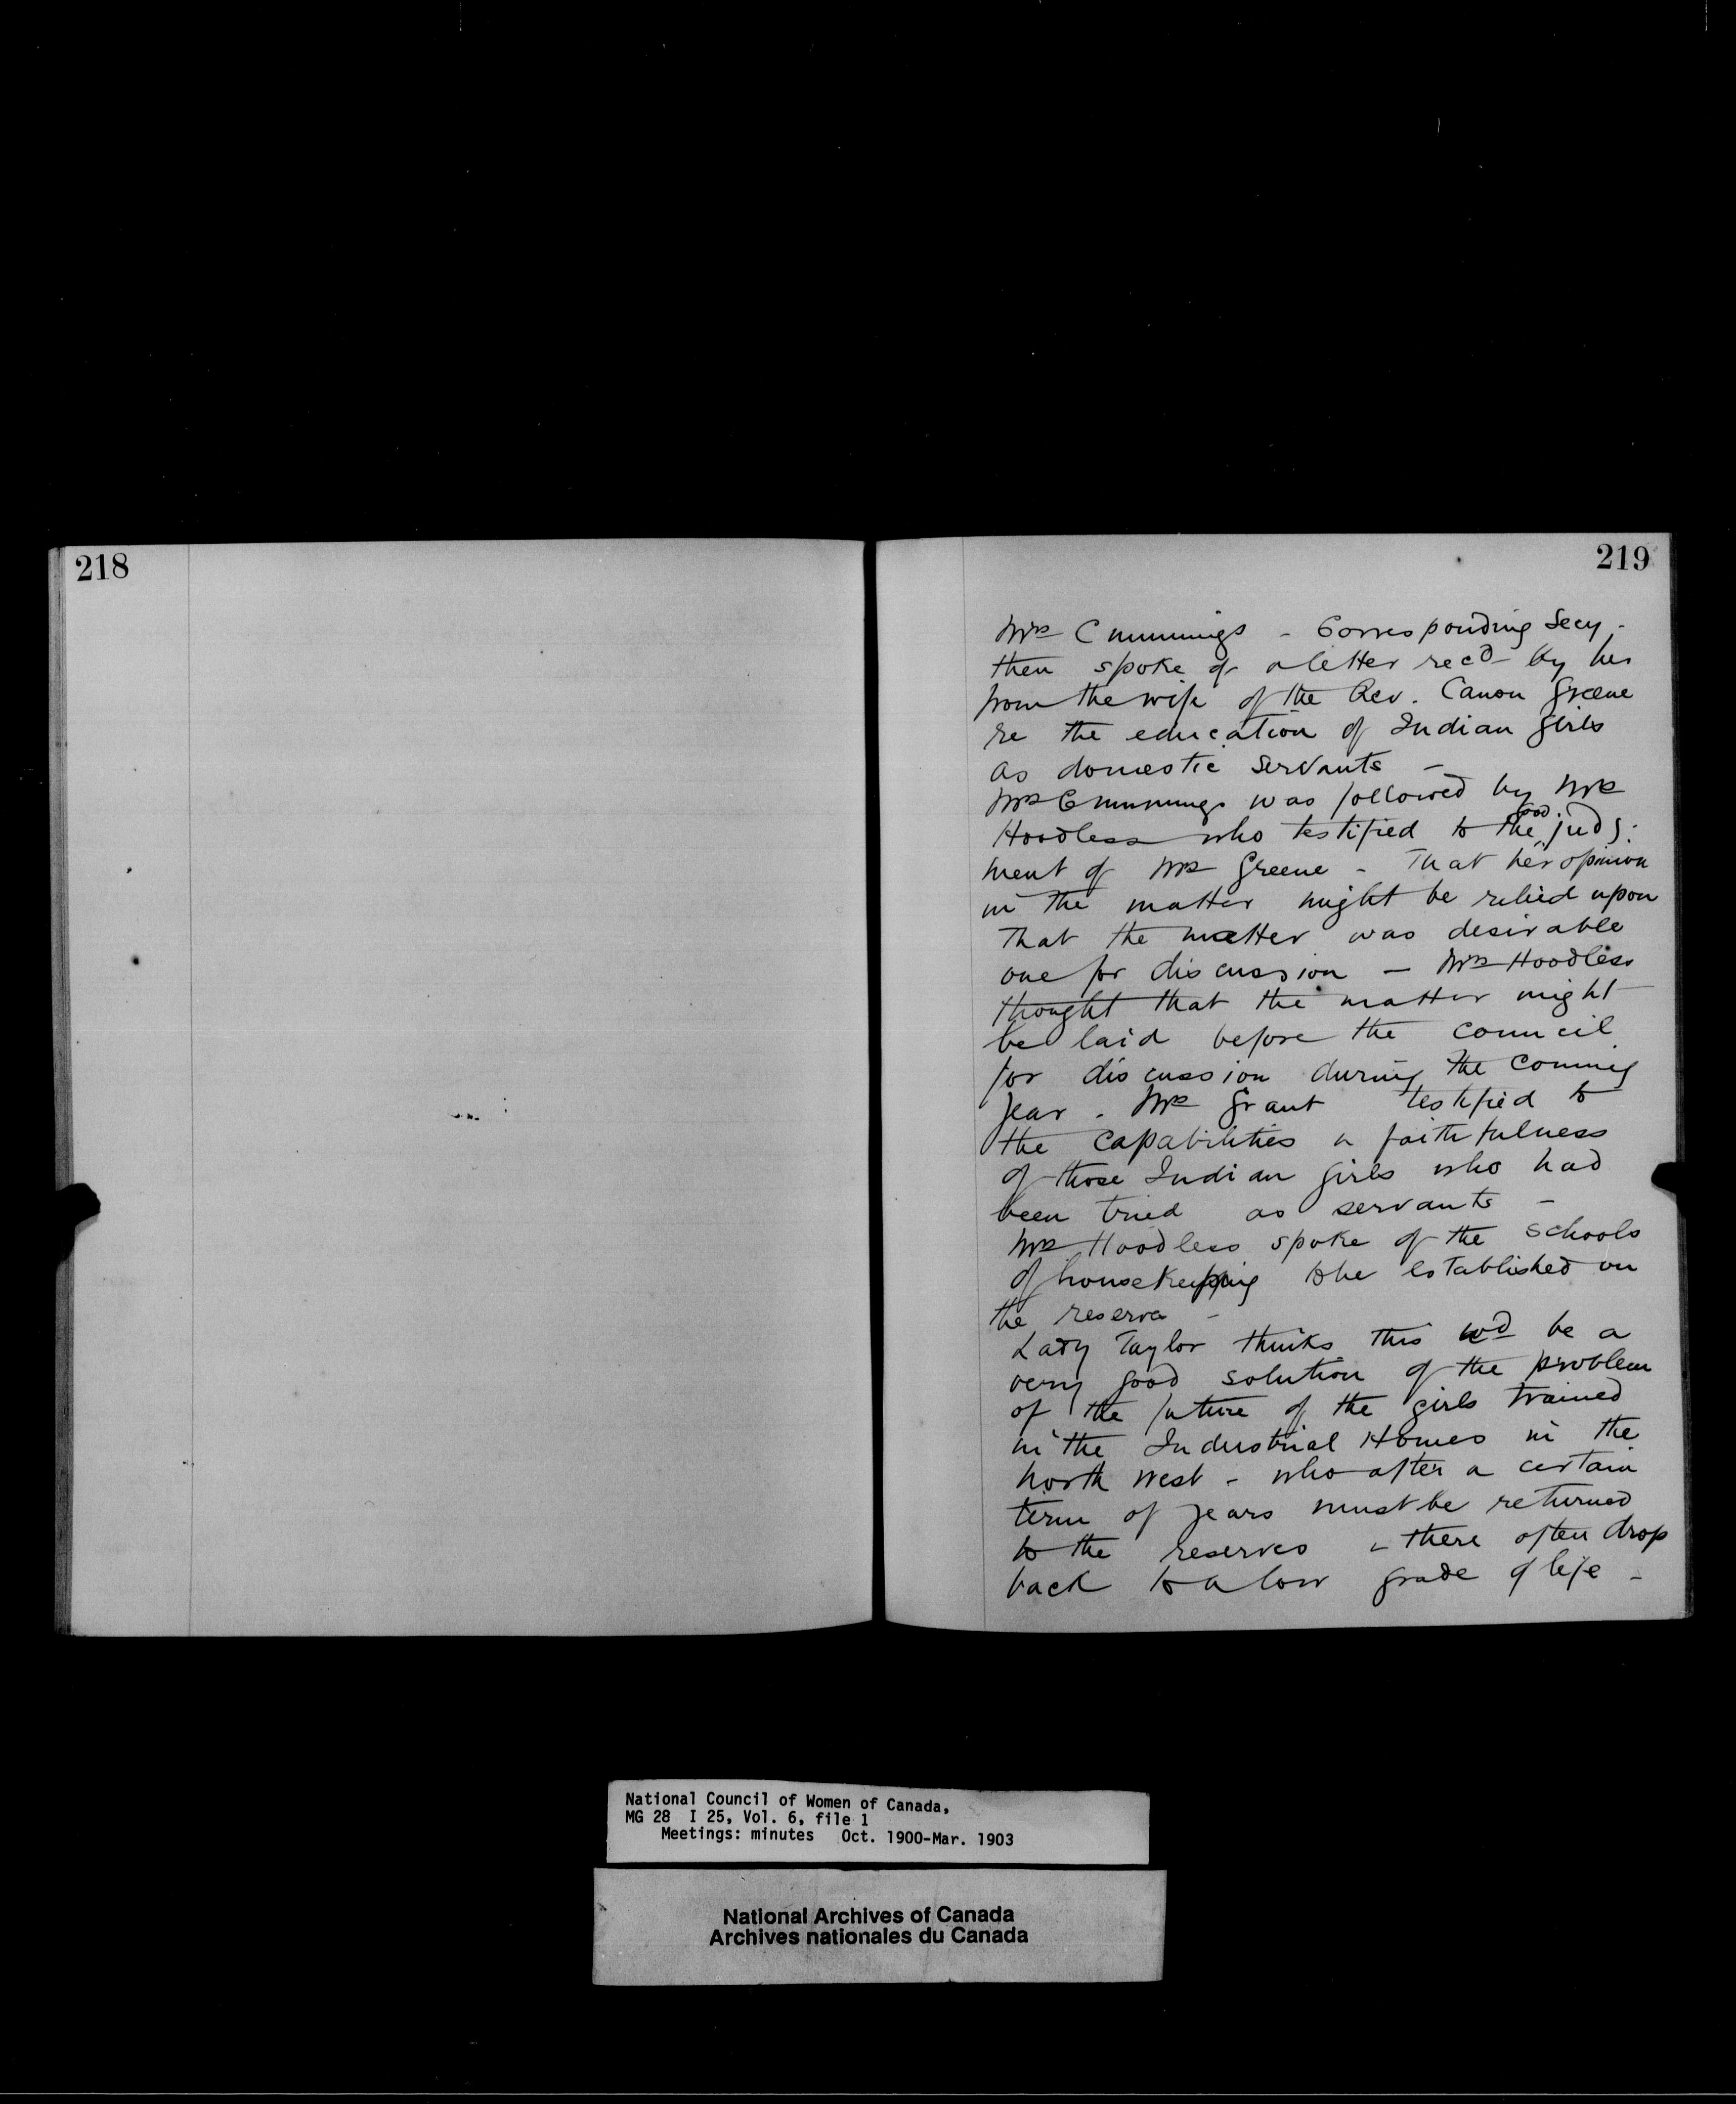 218
219
Mrs Cummings - Corresponding Secy.
then spoke of a letter rec'd by her
from the wife of the Rev. Canon Greene
re the education of Indian girls
as domestic servants -
Mrs Cummings was followed by Mrs
Hoodless who testified to the good judg-
ment of Mrs Greene - That her opinion
in the matter might be relied upon
That the matter was desirable
one for discussion - Mrs Hoodless
thought that the matter might
be laid before the council
for discussion during the coming
year. Mrs Grant testified to
the capabilities & faithfulness
of those Indian girls who had
been tried as servants -
Mrs Hoodless spoke of the schools
of housekeeping to be established on
the reserve -
Lady Taylor thinks this wd be a
very good solution of the problem
of the future of the girls trained
in the Industrial Homes in the
North West - who after a certain
term of years must be returned
to the reserves & there often drop
back to a low grade of life -
National Council of Women of Canada,
MG 28 I 25, Vol. 6, file 1
Meetings: minutes Oct. 1900-Mar. 1903
National Archives of Canada
Archives nationales du Canada